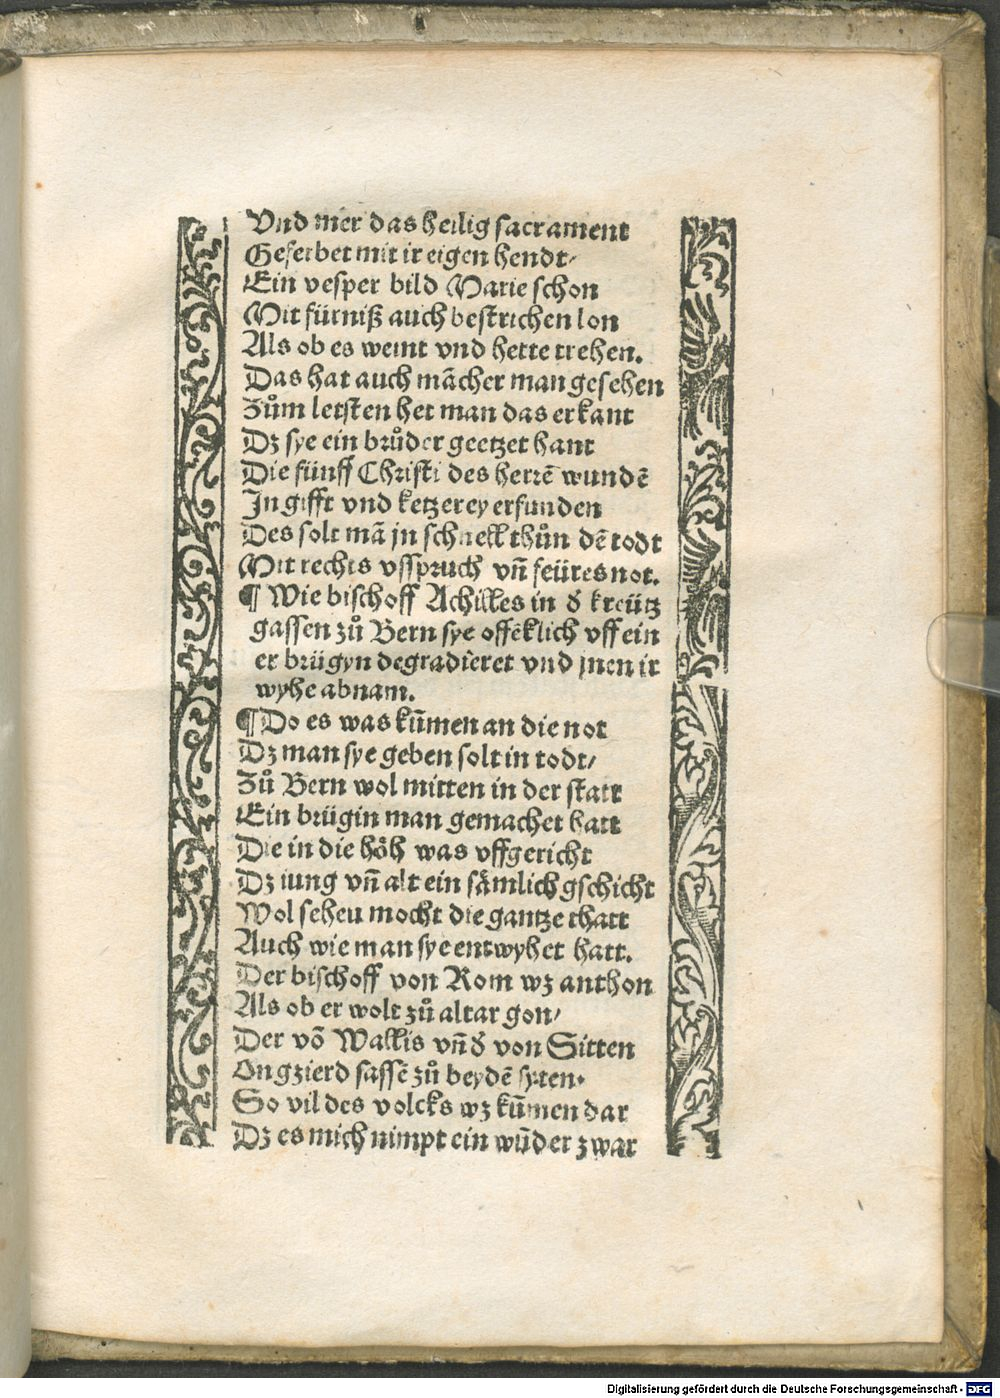 Vnd mer das heilig sacrament
Geferbet mit ir eigen hendt/
Ein vesper bild Marie schon
Mit fürniß auch bestrichen lon
Als ob es weint vnd hette trehen.
Das hat auch mãcher man gesehen
Zům letsten het man das erkant
Dz sye ein brůder geetzet hant
Die fünff Christi des herrẽ wundẽ
In gifft vnd ketzerey erfunden
Des solt mã jn schnell thůn dẽ todt
Mit rechts vsspruch vñ feüres not.
¶ Wie bischoff Achilles in d̕ kreütz
gassen zů Bern sye offẽklich vff ein
er brügyn degradieret vnd jnen ir
wyhe abnam.
¶ Do es was kũmen an die not
Dz man sye geben solt in todt/
Zů Bern wol mitten in der statt
Ein brügin man gemachet hatt
Die in die höh was vffgericht
Dz iung vñ alt ein sämlich gschicht
Wol seheu mocht die gantze thatt
Auch wie man sye entwyhet hatt.
Der bischoff von Rom wz anthon
Als ob er wolt zů altar gon/
Der võ Wallis vñ d̕ von Sitten
Ongzierd sassẽ zů beydẽ syten.
So vil des volcks wz kũmen dar
Dz es mich nimpt ein wũder zwar
Digitalisierung gefördert durch die Deutsche Forschungsgemeinschaft - DFG